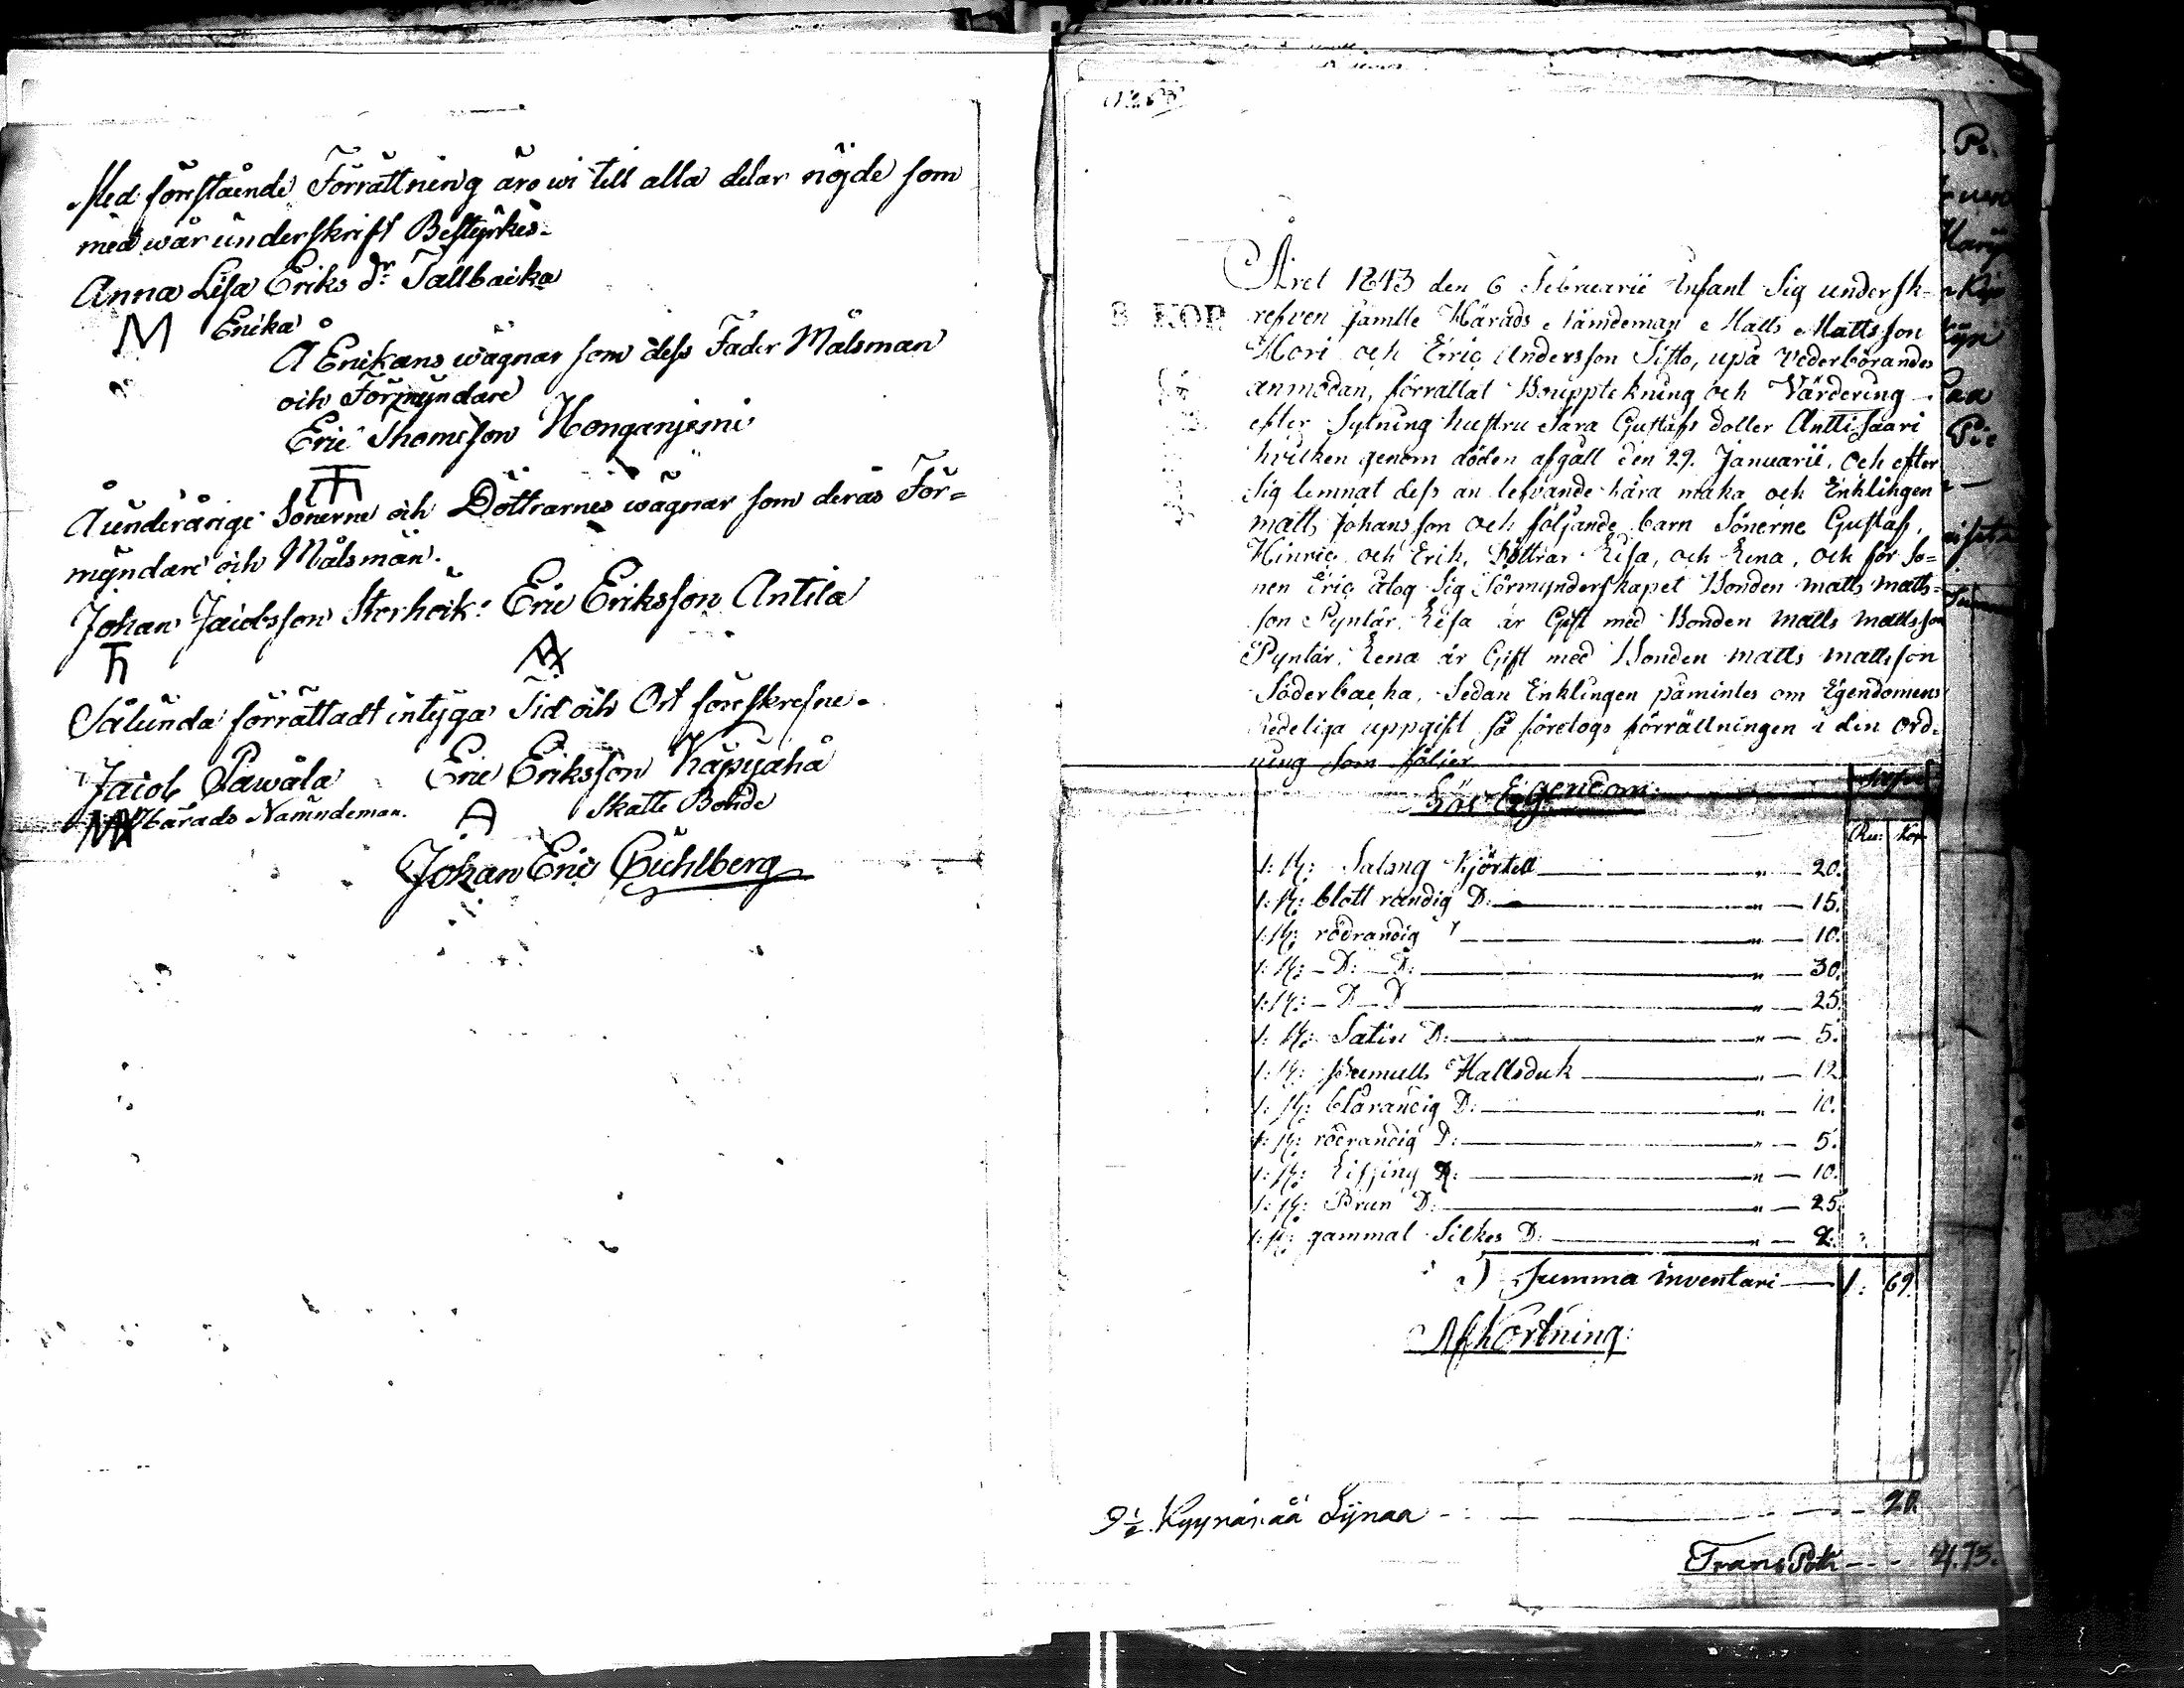 Med förestående Förrättning äro wi till alla delar nöjde som
med wår underskrift Bestyrkes.
Anna Lisa Eriks dr Tallbacka
M Erika
Å Erikans wägnar som dess Fader Målsman
och Förmyndare
Eric Thomeson Honganjemi
Å underårige Sönerne och Döttrarnes wägnar som deras För=
myndare och Målsmän.
Johan Jacobsson Eric Eriksson Antila
Sålunda förrättadt intyga Tid och Ort föreskrefne.
Jacob Pawola Eric Eriksson Käpyaho
Härads Nämndeman. A Skatte Bonde
Johan Eric Buhlberg
Året 1843 den 6 Februarii Infant Sig undersk-
8 KOP. refven jämte Härads Nämdeman Matts Mattsson
Hori och Eric Andersson Sisto, upå Vederbörandes
anmodan, förrättat Bouppteckning och Värdering
efter Sytning hustru Sara Gustafs dotter Anttisaari
hvilken genom döden afgått den 29. Januarii. Och efter
Sig lemnat dess än lefvande kära maka och Enklingen
matts Johansson och följande barn Sönerne Gustaf,
Hinric och Erik, Döttrar Lisa, och Lena, och för So=
nen Eric åtog Sig Förmynderskapet Bonden matts matts=
son Pyntär. Lisa är Gift med Bonden matts mattsson
Pyntär. Lena är Gift med Bonden matts mattsson
Söderbacka. Sedan Enklingen påmintes om Egendomens
Redeliga uppgift så företogs förrättningen i den ord-
ning som följer
Lös Egendom.
Ru: Kop
1: st: Salong Kjörtell " 20.
1: st: blott randig D: " 15.
1: st: rödrandig " 10.
1: st: D: D: " 30.
1: st: D D " 25.
1: st: Satin D: " 5.
1: st: Hallsduk " 12
1: st: blårandig D: " 10.
1: st: rödrandig D: " 5.
1: st: D: " 10.
1: st: Brun D: " 25.
1: st: gammal Silkes D: " 2.
Summa inventari 1: 69.
Afkortning:
9½ Kyynärää Lijnaa 20.
TransPort 4.73.